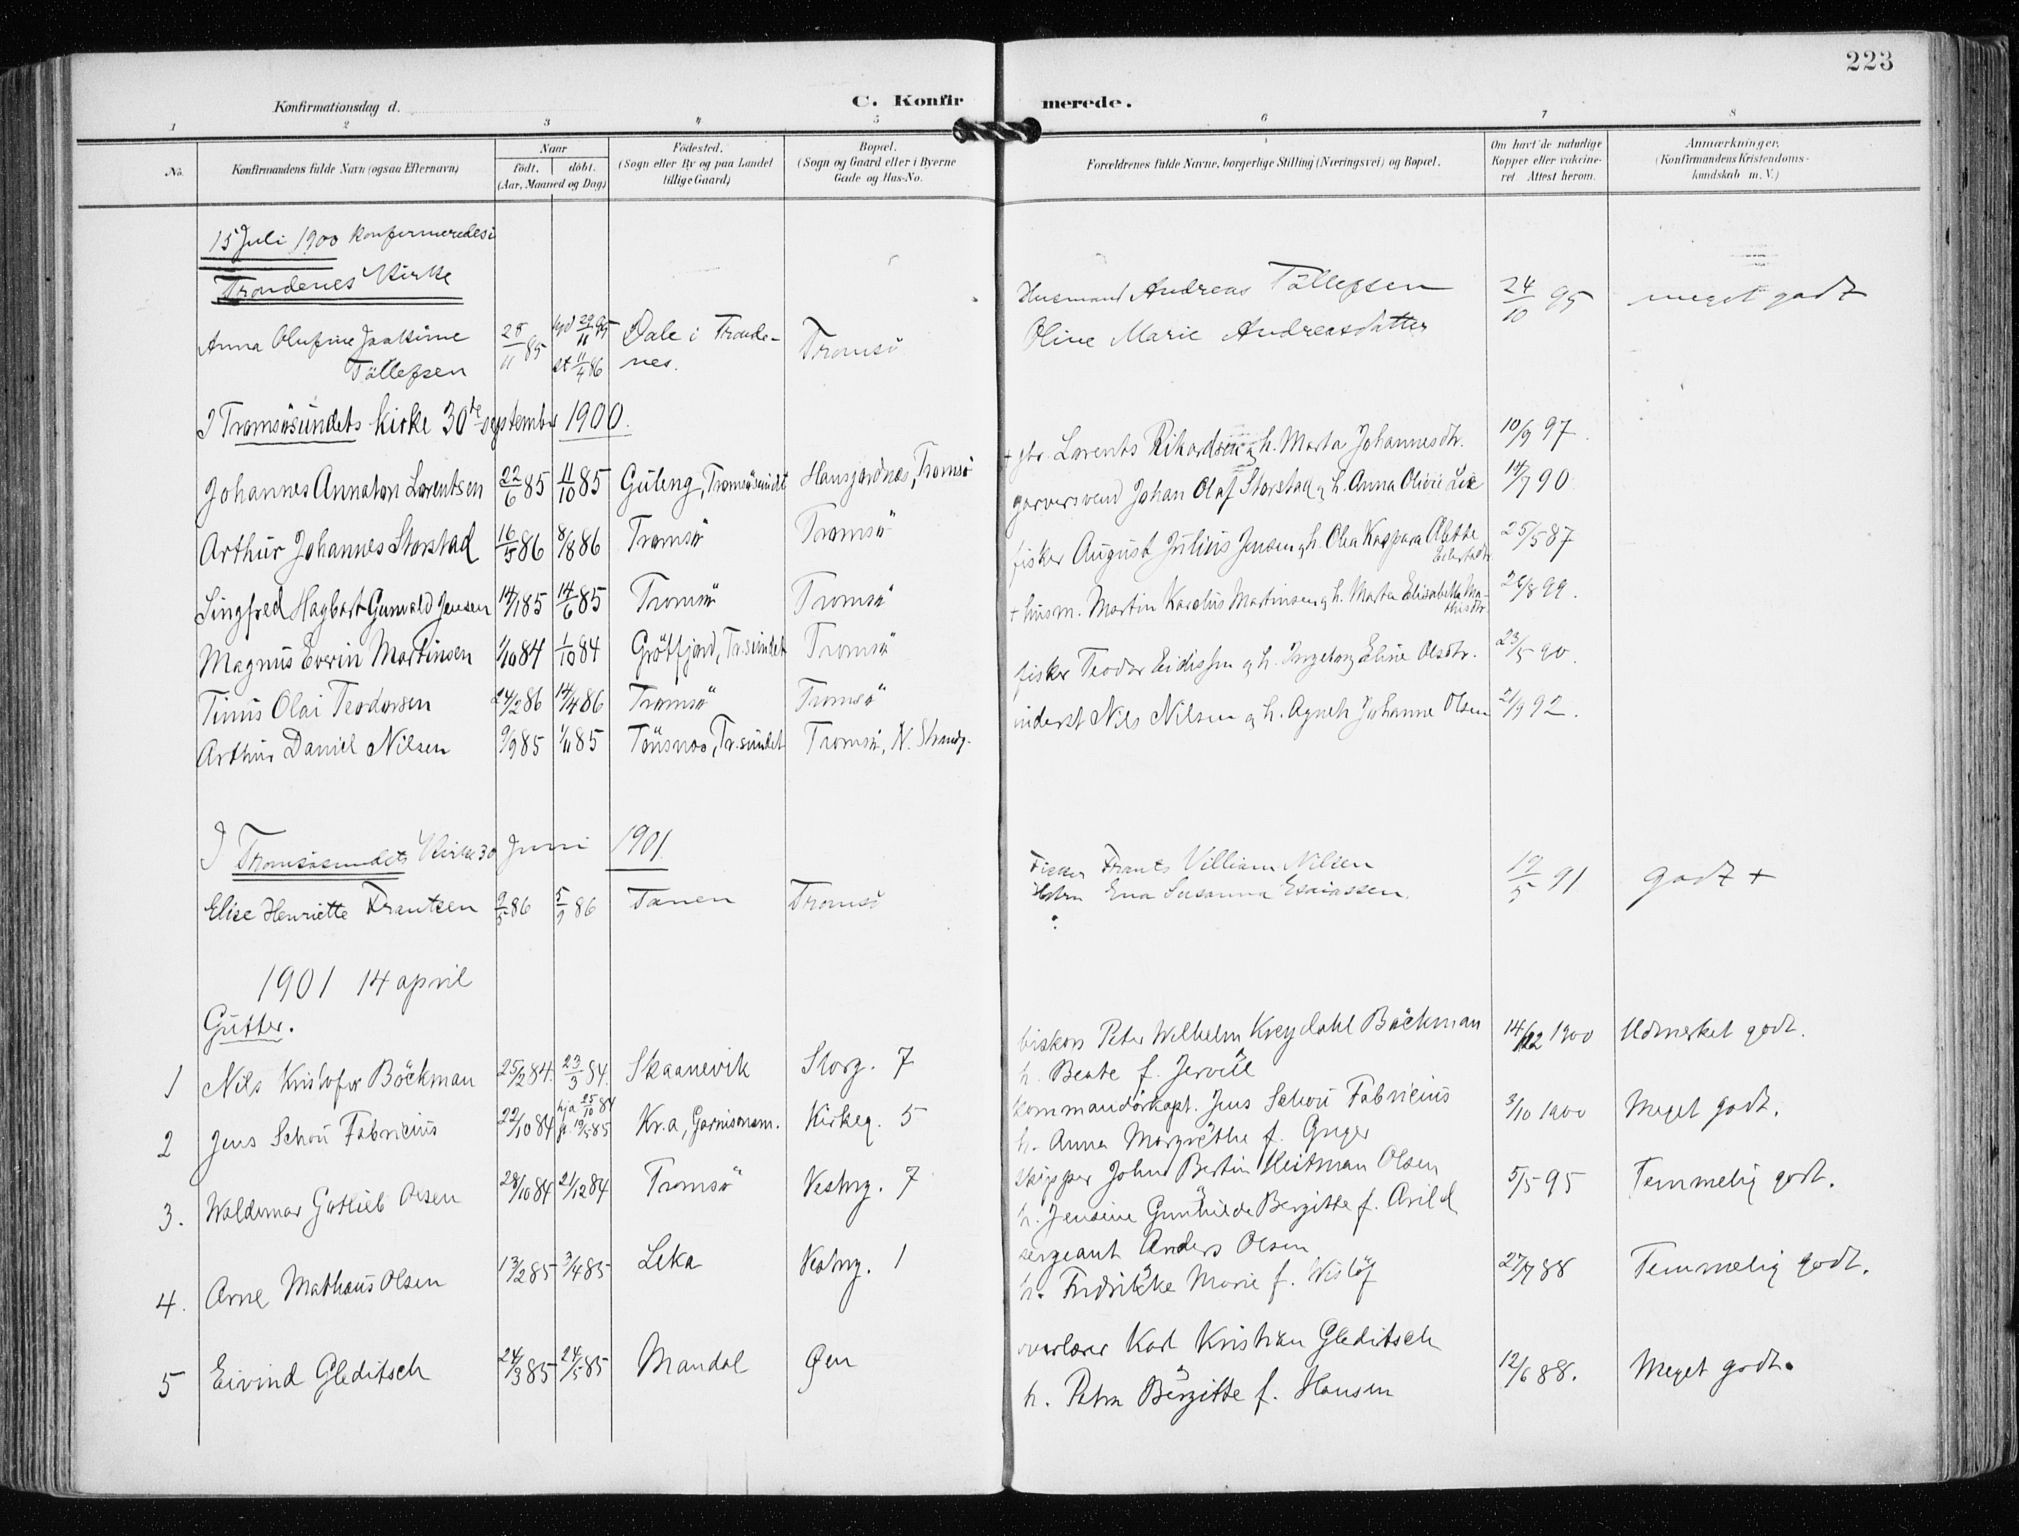 223
Konfirmationsdag d.
C. Konfirmerede.
1 2 3 4 5 6 7 8
No.
Konfirmandens fulde Navn (ogsaa Efternavn)
Naar
födt. döbt.
(Aar, Maaned og Dag)
Födested.
(Sogn eller By og paa Landet
tillige Gaard)
Bopæl.
(Sogn og Gaard eller i Byerne
Gade og Hus-No.
Forældrenes fulde Navne, borgerlige Stilling (Næringsvei) og Bopæl.
Om havt de naturlige
Kopper eller vakcine-
ret Attest herom.
Anmærkninger.
(Konfirmandens Kristendoms-
kundskab m. V.)
15 Juli 1900 konfirmeredes i
Trondenes Kirke
Husmand Andreas Töllefsen 24/10 95 meget godt
Anna Olufine Joakime 25/11 85 29/11 85 Dale i Tronde- Tromsö Oline Marie Andreasdatter
Töllefsen st 11/4 86 nes.
I Tromsösundets kirke 30te september 1900.
Johannes Annaton Lorentsen 22/6 85 11/10 85 Guleng, Tromsösundet Hansjordnes, Tromsö + gbr. Lorents Rikardsen og h. Marta Johannesdtr. 10/9 97.
Arthur Johannes Storstad 16/5 86 8/8 86 Tromsö Tromsö garversvend Johan Olaf Storstad og h. Anna Olivie Lie 14/7 90.
Singfred Hagbart Gunvald Jensen 14/1 85 14/6 85 Tromsö Tromsö fisker August Julius Jensen og h. Olea Kaspara Alette 25/5 87
Magnus Everin Martinsen 1/10 84 1/10 84 Grötfjord, Tr.sundet Tromsö + husm. Martin Karelius Martinsen og h. Marta Elisabeth Ma-
thisdtr. 26/8 99.
Tinus Olai Teodorsen 24/2 86 14/4 86 Tromsö Tromsö fisker Teodor Eidissen og h. Ingeborg Eline Olsdtr. 23/5 90.
Arthur Daniel Nilsen 9/9 85 1/11 85 Tönsnes, Tr.sundet Tromsö, N. Strandg. inderst Nils Nilsen og h. Agnete Johanne Olsen 2/9 92.
I Tromsösundets Kirke 30 Juni 1901.
Elise Henriette Frantsen 9/5 86 5/9 86 Tanen Tromsö Fisker Frants Villiam Nilsen 19/5 91 godt +
Hstru Ena Susanna Esaiassen.
1901 14 april
Gutter.
1 Nils Kristofer Böckman 25/2 84. 23/3 84. Skaanevik Storg. 7 biskop Peter Wilhelm Kreydahl Böckman 14/12 1900 Udmerket godt.
h. Beate f. Jervell
2 Jens Schou Fabricius 22/10 84 hja 25/10 84 Kr.a, Garnisonsm. Kirkeg. 5 kommandörkapt. Jens Schou Fabricius 3/10 1900 Meget godt.
p. 19/5 85 h. Anna Margrethe f.
3. Waldemar Gotlieb Olsen 28/10 84 21/12 84 Tromsö Vestreg. 7 skipper Johan Bertin Heitman Olsen 5/5 95 Temmelig godt.
h. Jensine Gunhilde Bergitte f. Arild
4. Arne Mathæus Olsen 13/2 85 3/4 85 Leka Vestreg. 1 sergeant Anders Olsen 27/7 88 Temmelig godt.
h. Fredrikke Marie f. Wislöf
5 Eivind Gleditsch 24/3 85 24/5 85 Mandal Øen overlærer Karl Kristian Gleditsch 12/6 88. Meget godt.
h. Petra Bergitte f. Hansen